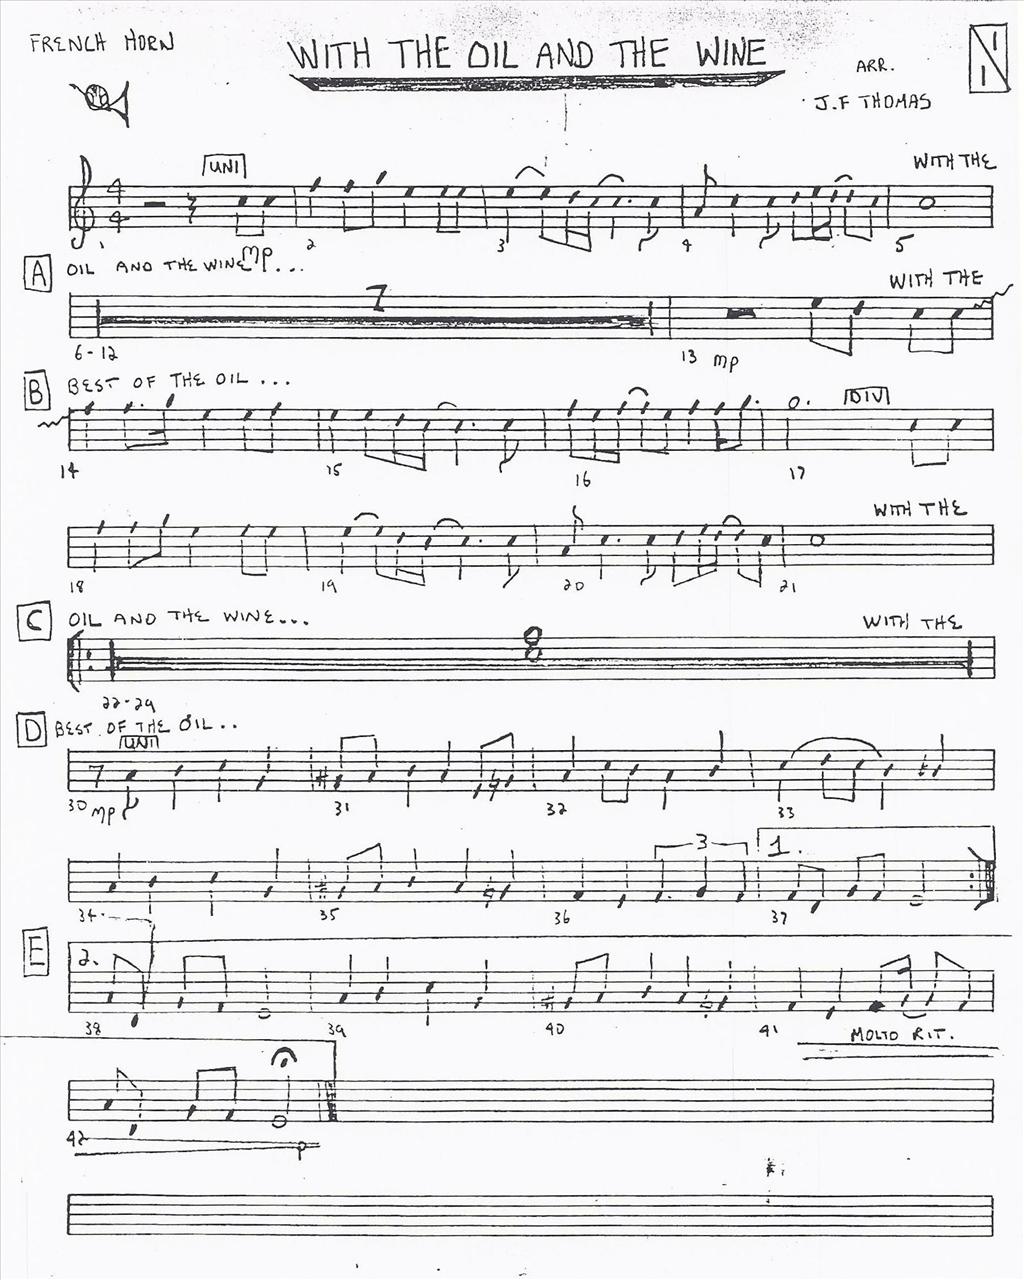 FRENCH HORN
WITH THE OIL AND THE WINE
ARR.
J.F THOMAS
UNI
WITH THE
4
4
1 2 3 4 5
mp
A OIL AND THE WINE...
WITH THE
7
6-12 13 mp
B BEST OF THE OIL...
DIV
14 15 16 17
WITH THE
18 19 20 21
C OIL AND THE WINE...
WITH THE
8
22-29
D BEST OF THE OIL..
UNI
30 mp 31 32 33
3
1.
34 35 36 37
E
2.
38 39 40 41
MOLTO RIT.
42
p